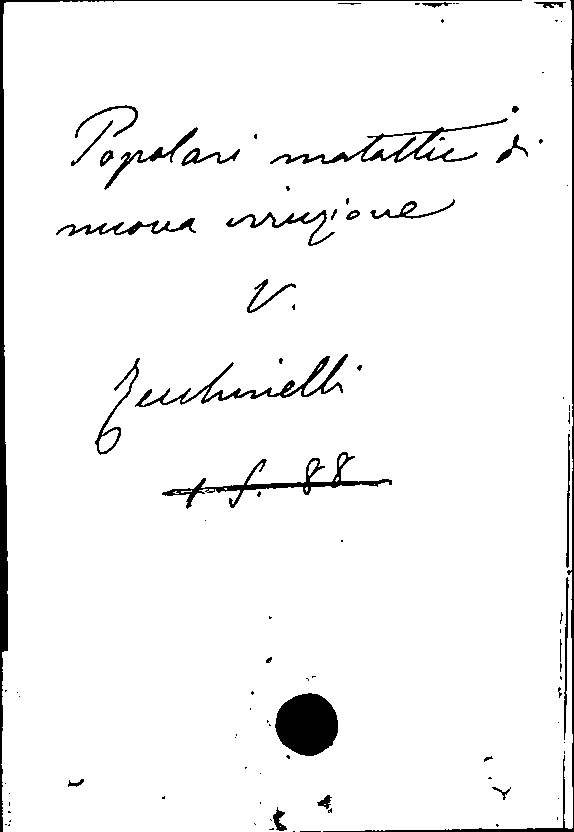 Popolari malattie di
nuova irruzione
V.
Zecchinelli
1 f. 88